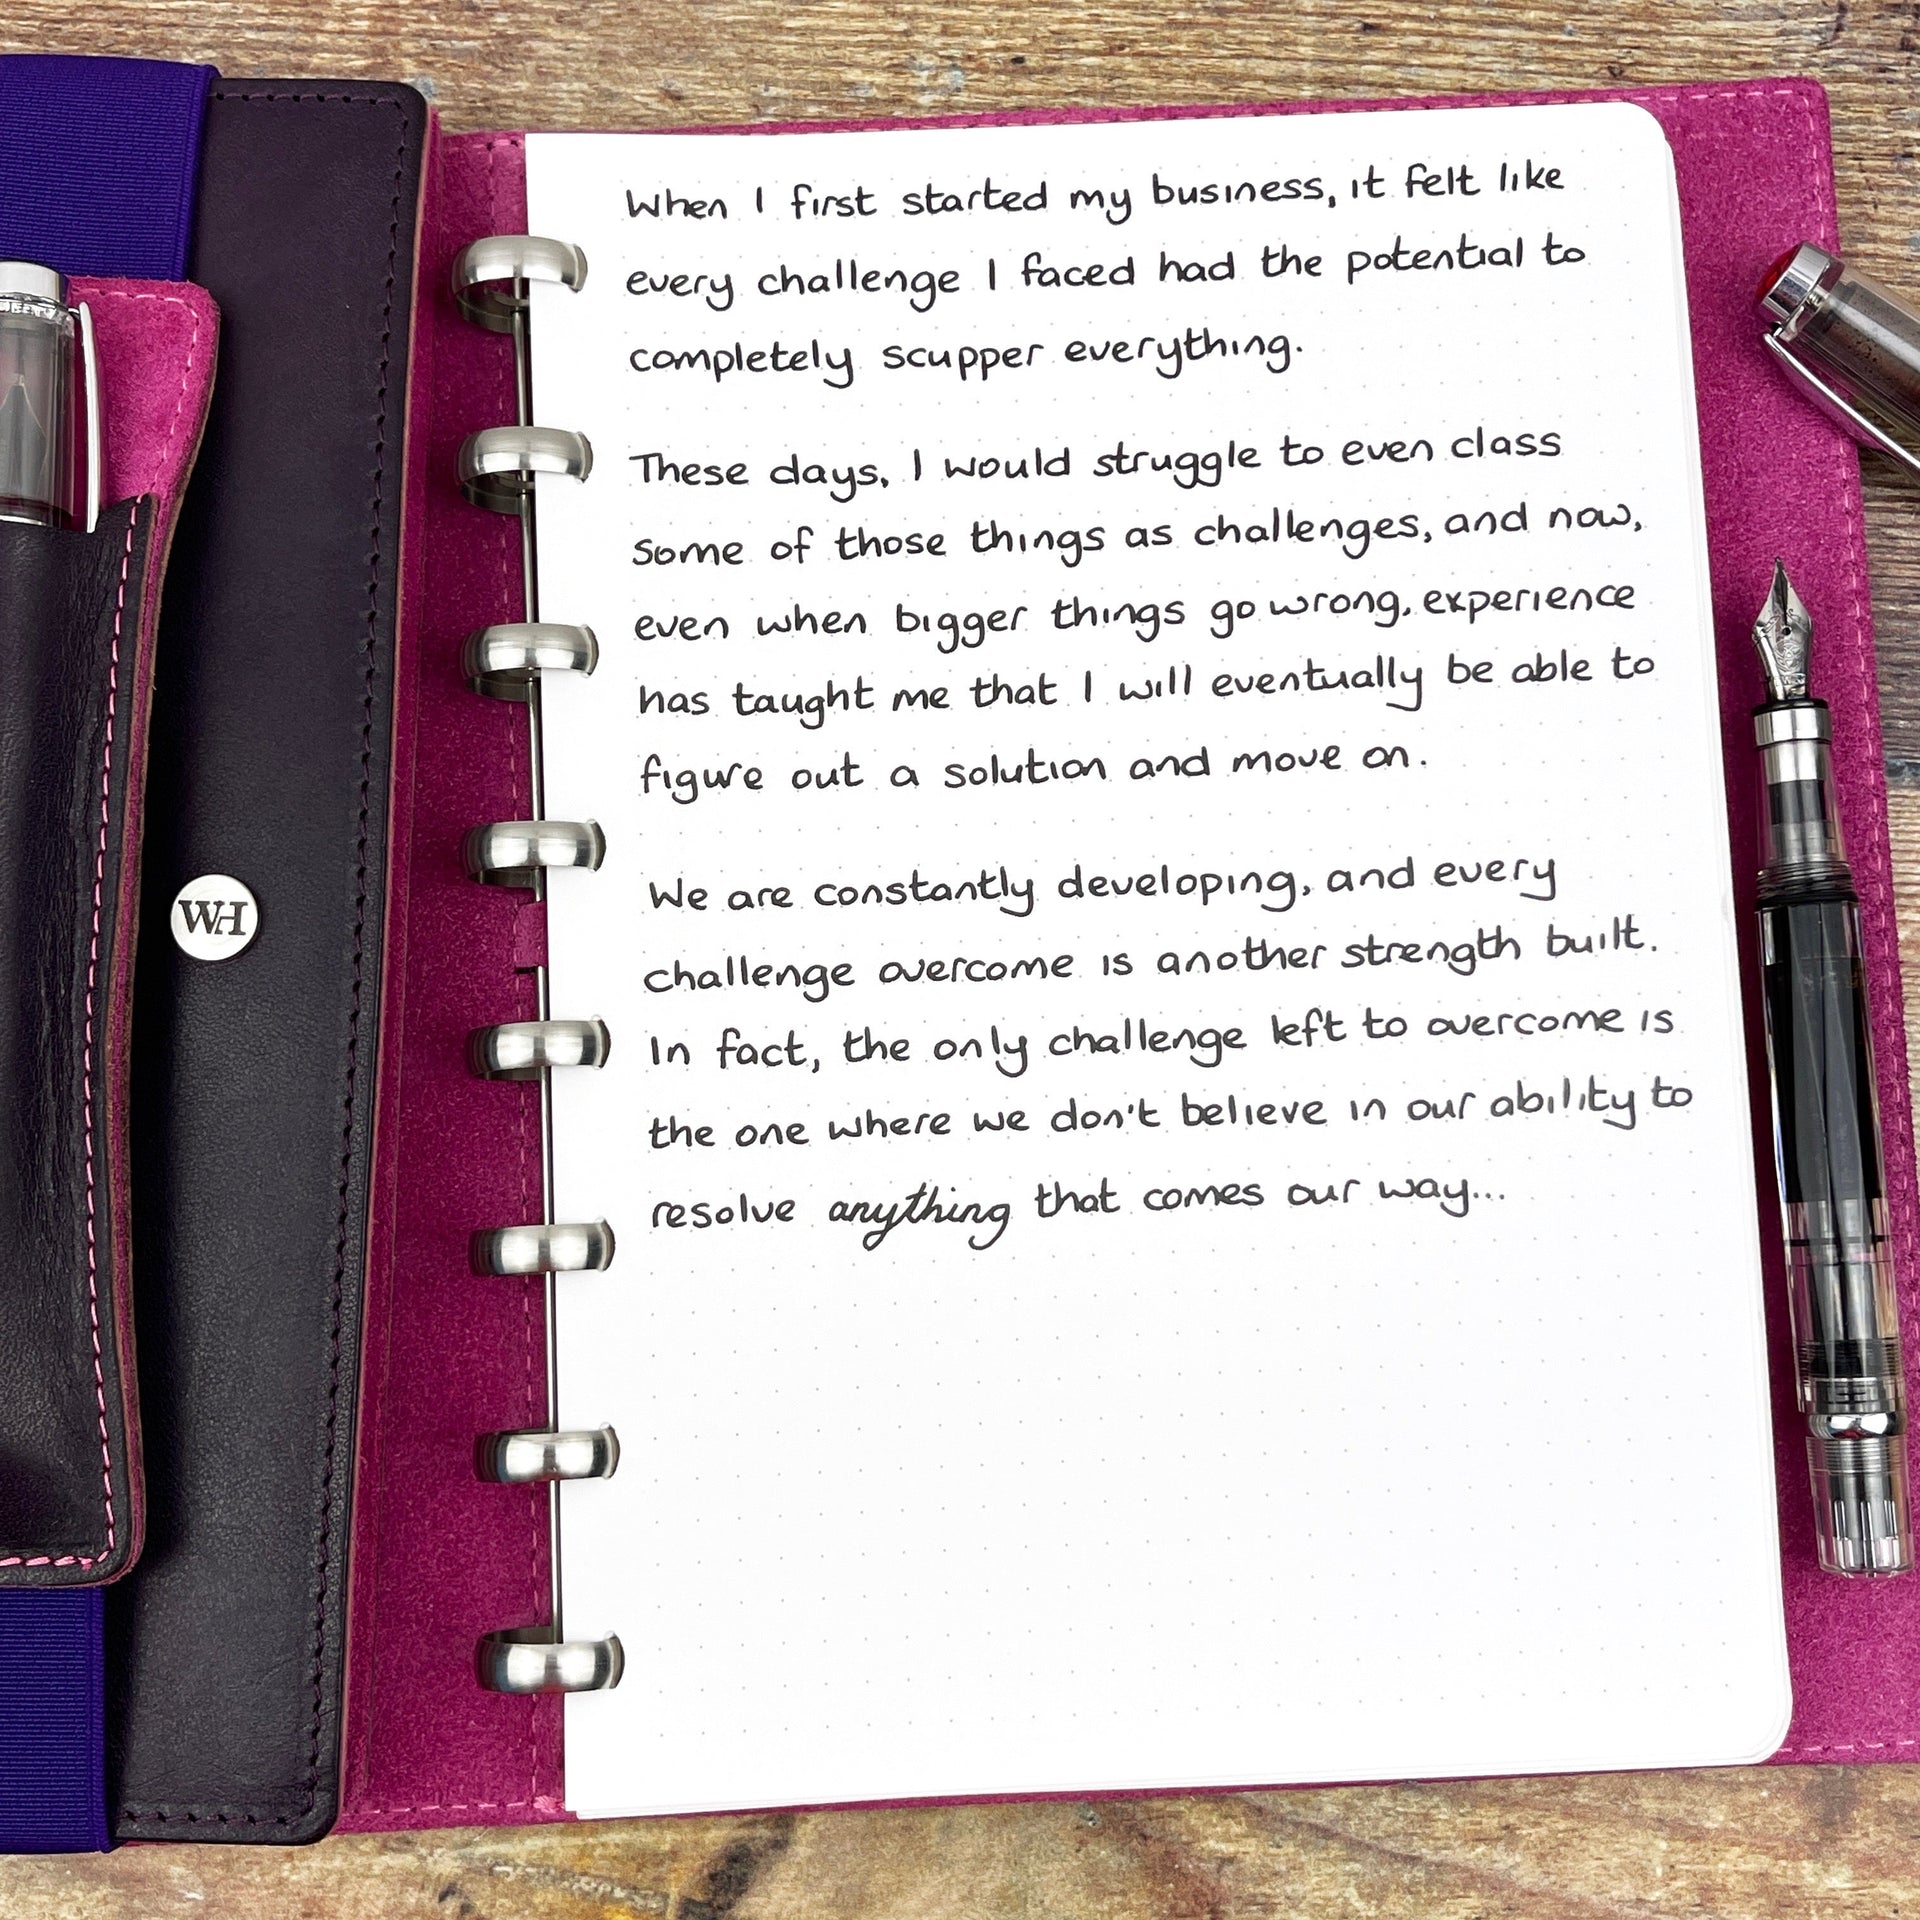 When I first started my business, it felt like
every challenge I faced had the potential to
completely scupper everything.
These days, I would struggle to even class
some of those things as challenges, and now,
even when bigger things go wrong, experience
has taught me that I will eventually be able to
figure out a solution and move on.
We are constantly developing, and every
challenge overcome is another strength built.
In fact, the only challenge left to overcome is
the one where we don't believe in our ability to
resolve anything that comes our way...
WH